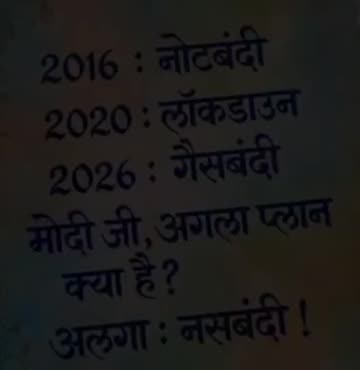 2016 : नोटबंदी
2020 : लॉकडाउन
2026 : गैसबंदी
मोदी जी, अगला प्लान
क्या है?
अलगा : नसबंदी !